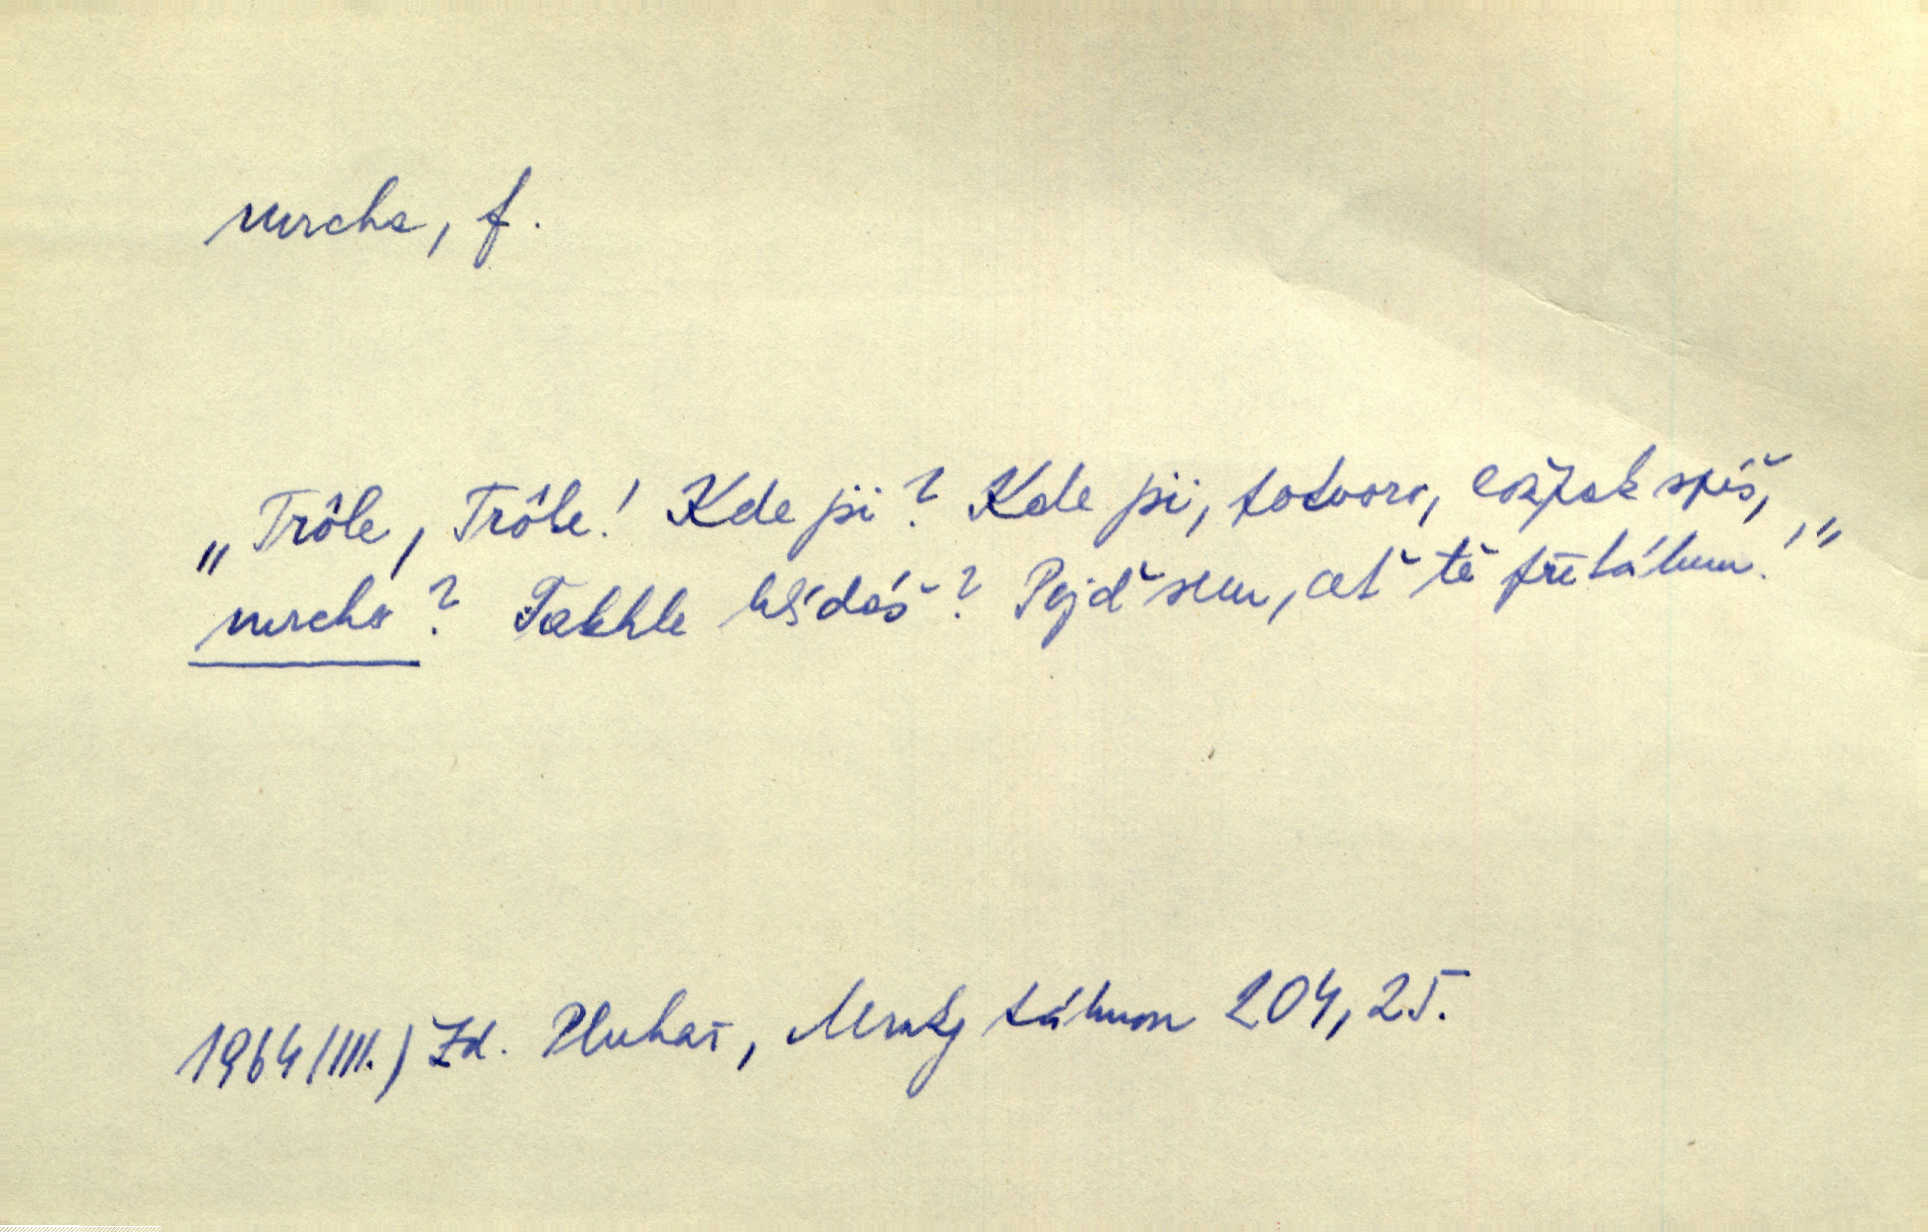 mrcha, f.
„Trôle, Trôle! Kde jsi? Kde jsi, potvoro, cožpak spíš,
mrcho? Takhle hlídáš? Pojď sem, ať tě přetáhnu!"
1964 (III.) Zd. Pluhař, Mraky táhnou 204, 25.